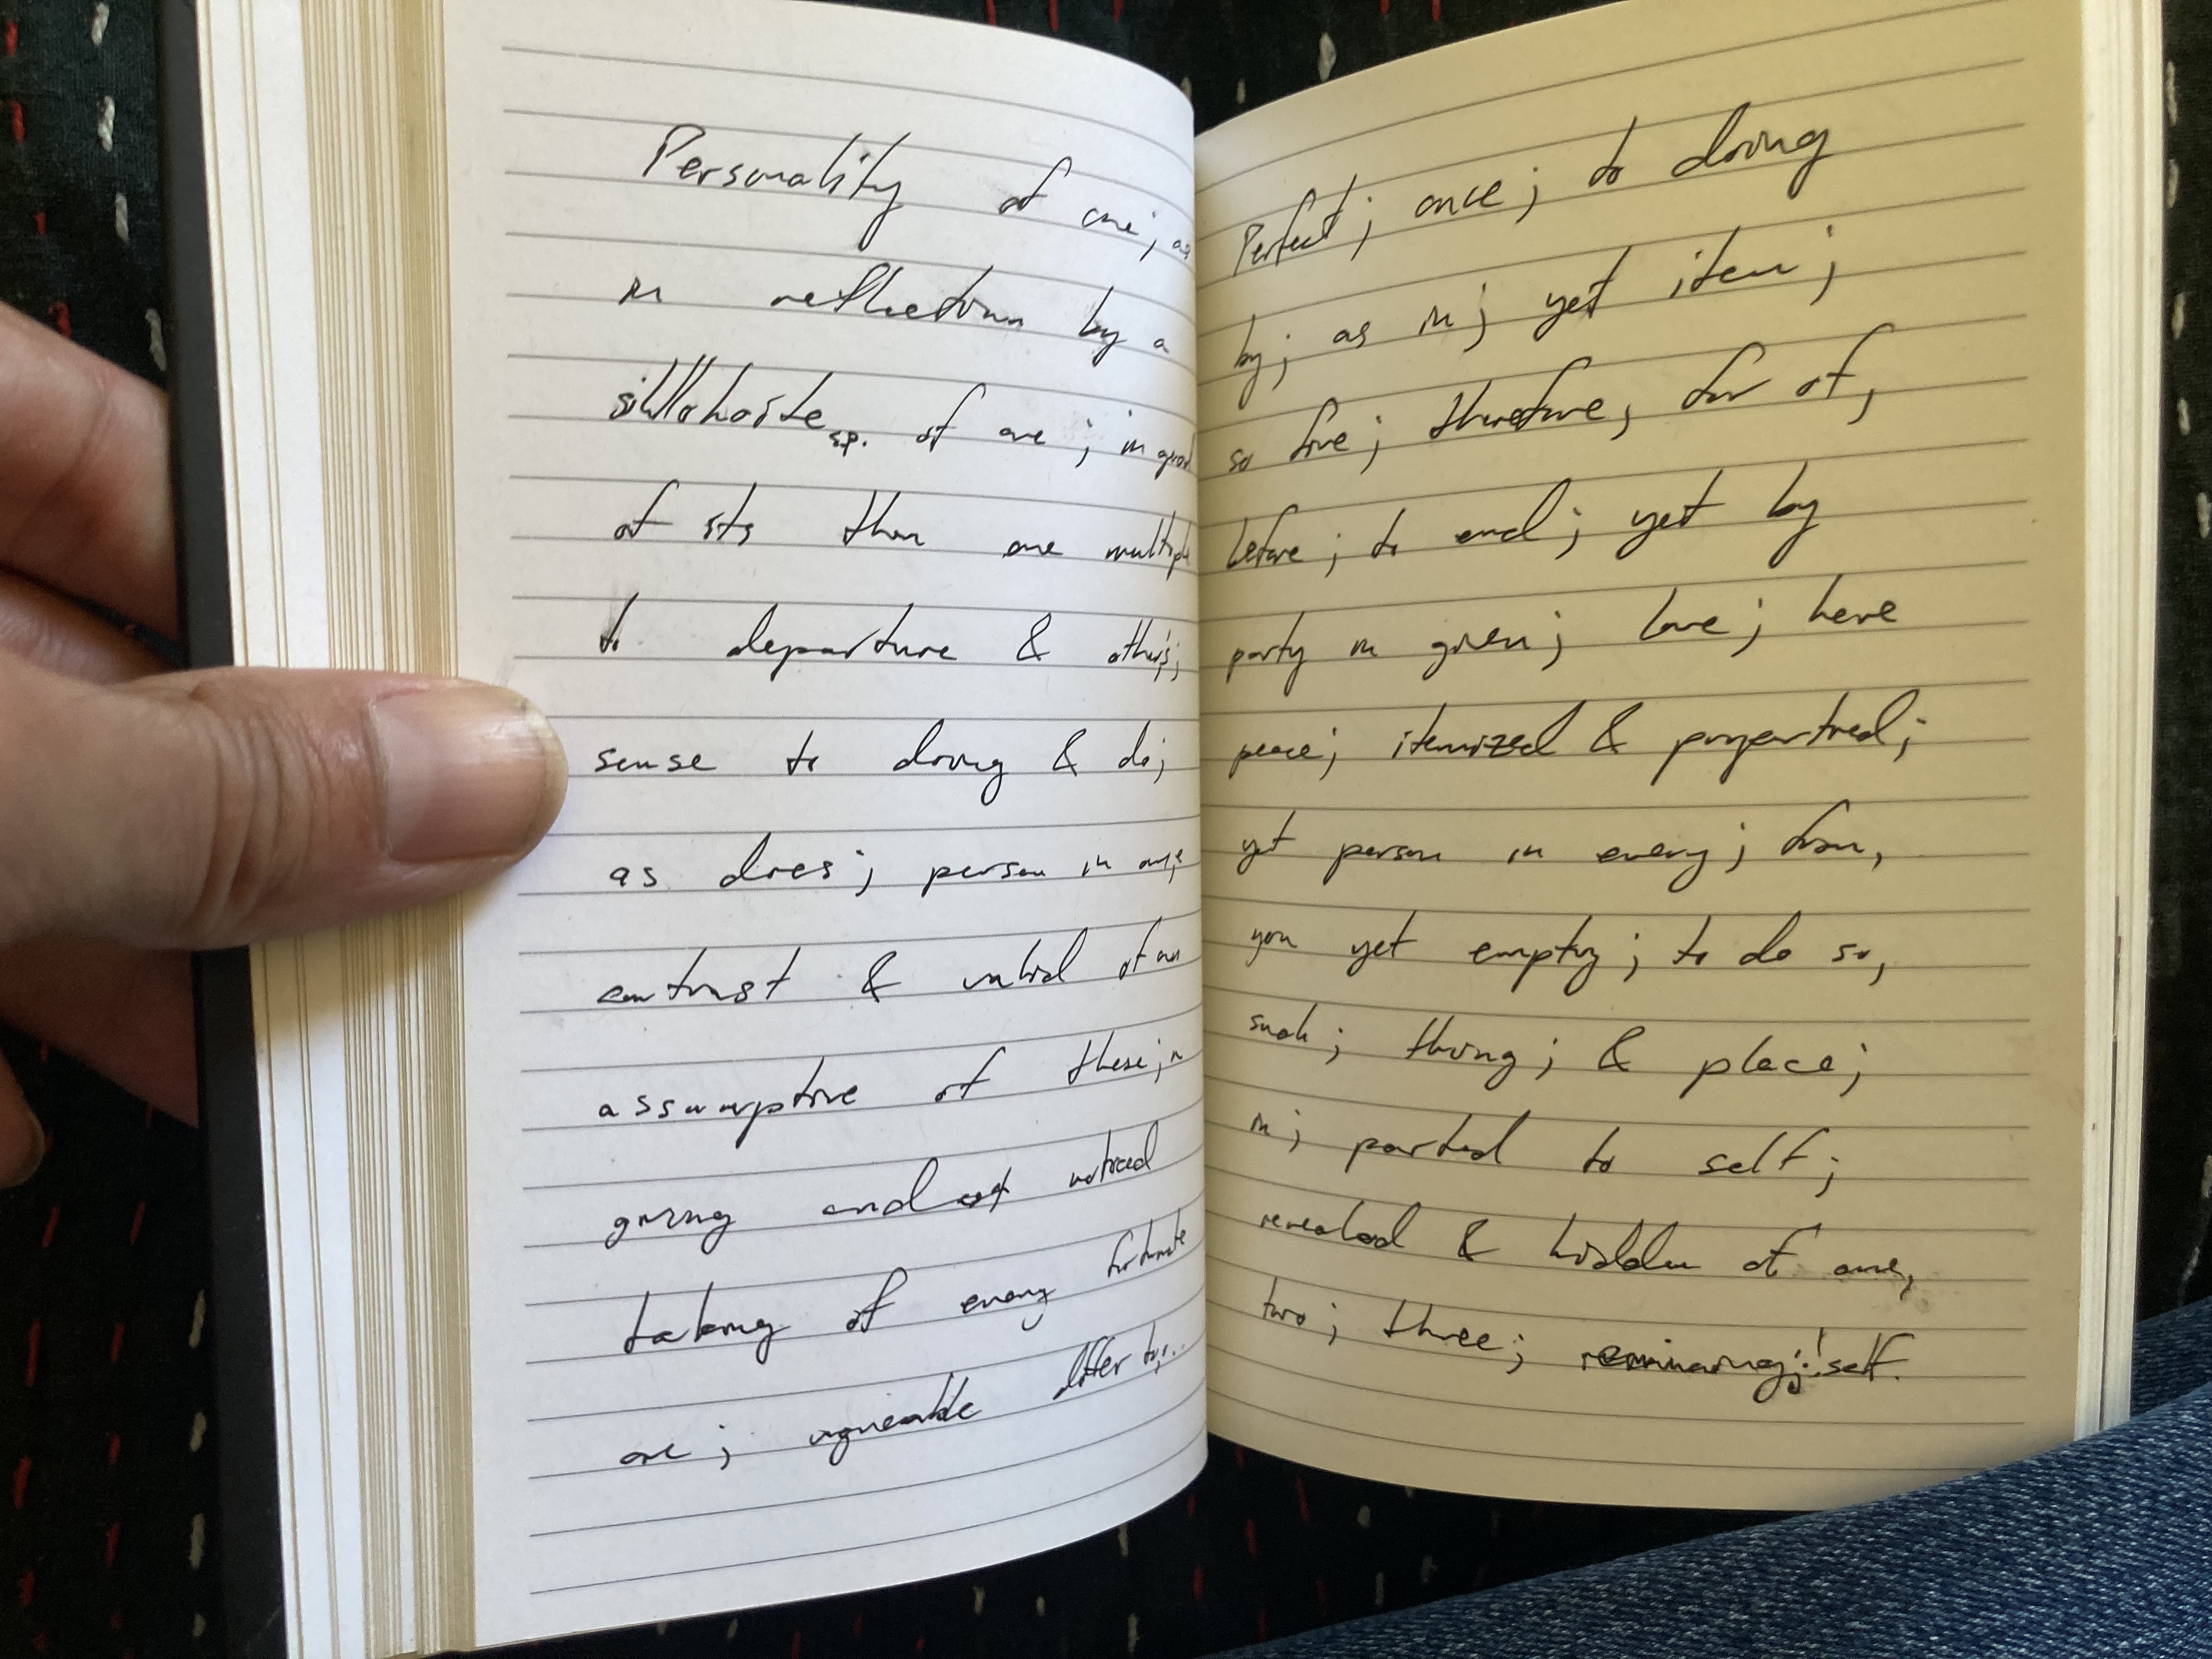 Personality of one; as
in reflection by a
sillohoite sp. of one; in good
of its then one multiple
to departure & other's;
sense to doing & do;
as does; person in one;
contrast & valid of an
assumptive of these; in
giving and noticed
taking of every fortunate
one; agreeable differ by...
Perfect; once; to doing
by; as in; yet item;
so five; therefore, for of,
before; to end; yet by
party in given; love; here
peace; itemized & proportied;
yet person in every; from,
you yet empty; to do so,
such; thing; & place;
in; parted to self;
revealed & hidden of one,
two; three; remaining; self.